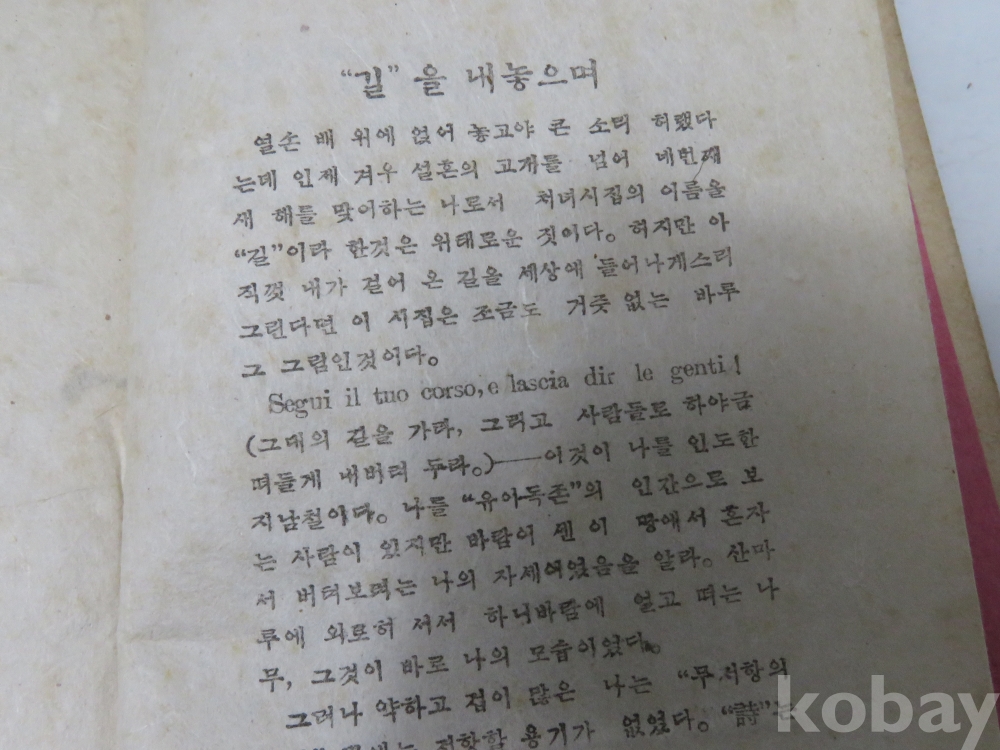 “길”을 내놓으며
열손 배 위에 얹어 놓고야 큰 소리 허랬다
는데 인제 겨우 설흔의 고개를 넘어 네번째
새 해를 맞이하는 나로서 처녀시집의 이름을
“길”이라 한것은 위태로운 짓이다。 허지만 아
직껏 내가 걸어 온 길을 세상에 들어나게스리
그린다면 이 시집은 조금도 거줏 없는 바루
그 그림인것이다。
Segui il tuo corso, e lascia dir le genti!
(그대의 길을 가라, 그리고 사람들로 하야금
떠들게 내버려 두라。)──이것이 나를 인도한
지남철이다。 나를 “유아독존”의 인간으로 보
는 사람이 있지만 바람이 센 이 땅에서 혼자
서 버텨보려는 나의 자세였음을 알라。 산마
루에 외로히 서서 하늬바람에 얼고 떠는 나
무, 그것이 바로 나의 모습이었다。
그러나 약하고 겁이 많은 나는 “무저항의
저항할 용기가 없었다。 “詩”는
kobay